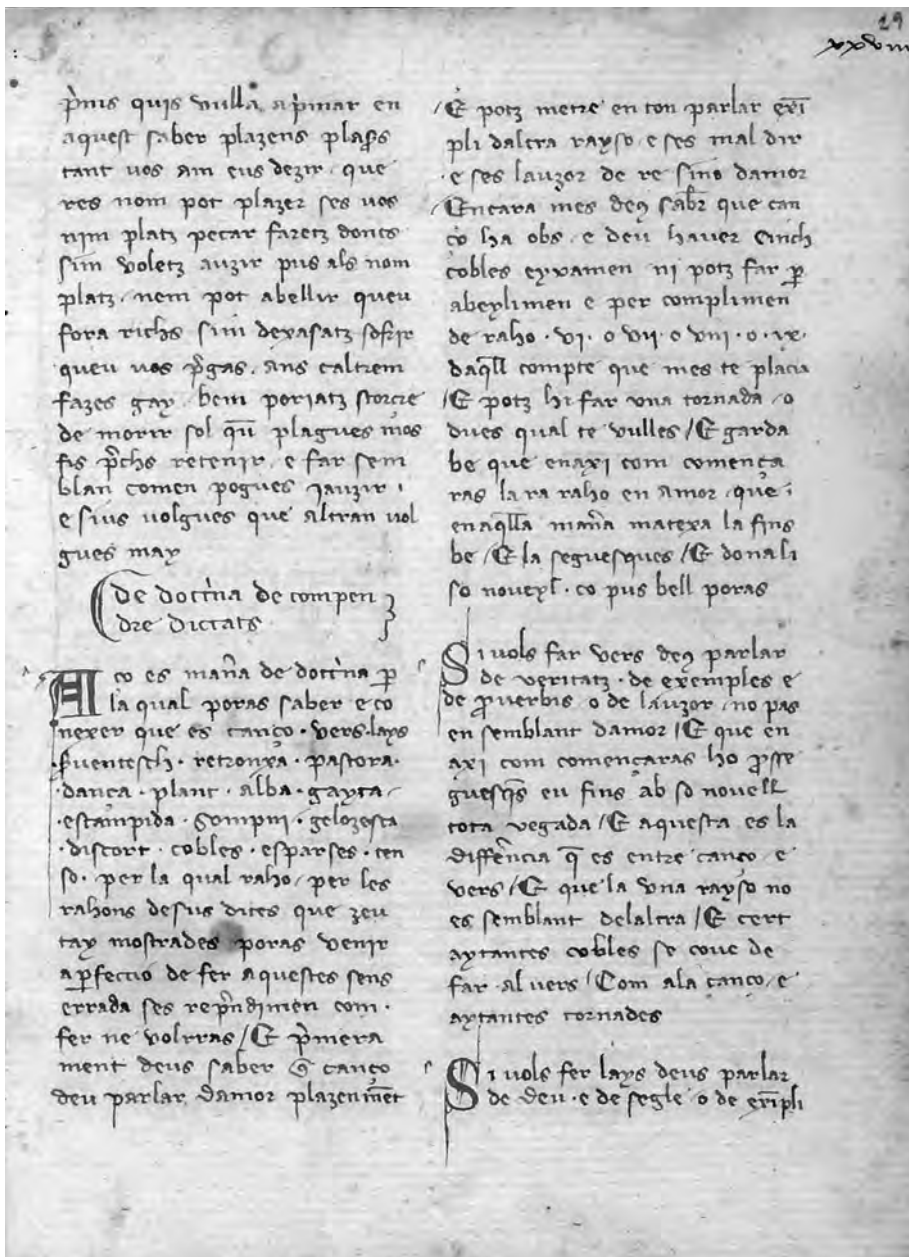 29
xxviii
p̄nis quis uulla ap̄inar en
aquest saber plazens plaers
tant uos am eus dezir · que
res nom pot plazer ses uos
nim platz pecar faretz doncs
sim voletz auzir pus als nom
platz · nem pot abellir queu
fora richs sim dexasatz sofrir
queu uos p̄gas · ans caltrem
fazes gay · bem poriatz storcre
de morir sol qū plagues mos
fis p̄chs retenir · e far sem
blan comen pogues jauzir ·
e sius uolgues que altran uol
gues may
De doct̄na de compen
dre dictats
Aço es man̄a de doct̄na p̱
la qual poras saber e co
nexer que es canço · vers · lays
· s̄uentesch · retronxa · pastora ·
· dança · plant · alba · gayta /
· estampida · sompni · gelozesca
· discort · cobles · esparses · ten
so · per la qual raho / per les
rahons desus dites que zeu
tay mostrades poras venir
a p̱feccio de fer aquestes sens
errada ses rep̄ndimen com ·
fer ne volrras / E p̄mera
ment deus saber q̄ canço
deu parlar damor plazenm̄et
/ E potz metre en ton parlar exēi
pli daltra rayso · e ses mal dir
· e ses lauzor de re sino damor
/ Encara mes deꝰ sab̄r que can
ço ha obs · e deu hauer cinch
cobles eyxamen ni potz far p̱
abeylimen e per complimen
de raho · vi · o vii · o viii · o · ix ·
daq̄ll compte que mes te placia
/ E potz hi far vna tornada · o
dues qual te vulles / E garda
be que enaxi com comença
ras la ra raho en amor · que ·
enaq̄lla man̄a matexa la fins
be / E la seguesques / E dona li
so noueyl · co pus bell poras
Si uols far vers deꝰ parlar
de veritatz · de exemples e
de prouerbis · o de lauzor · no pas
en semblant damor / E que en
axi com començaras ho prosse
guesq̄s eu fins ab so nouell
tota vegada / E aquesta es la
diffēncia q̄ es entre canço · e
vers / E que la vna rayso no
es semblant delaltra / E cert
aytantes cobles se coue de
far · al vers / Com ala canço · e
aytantes tornades
Si uols fer lays deus parlar
de deu · e de segle · o de exīpli